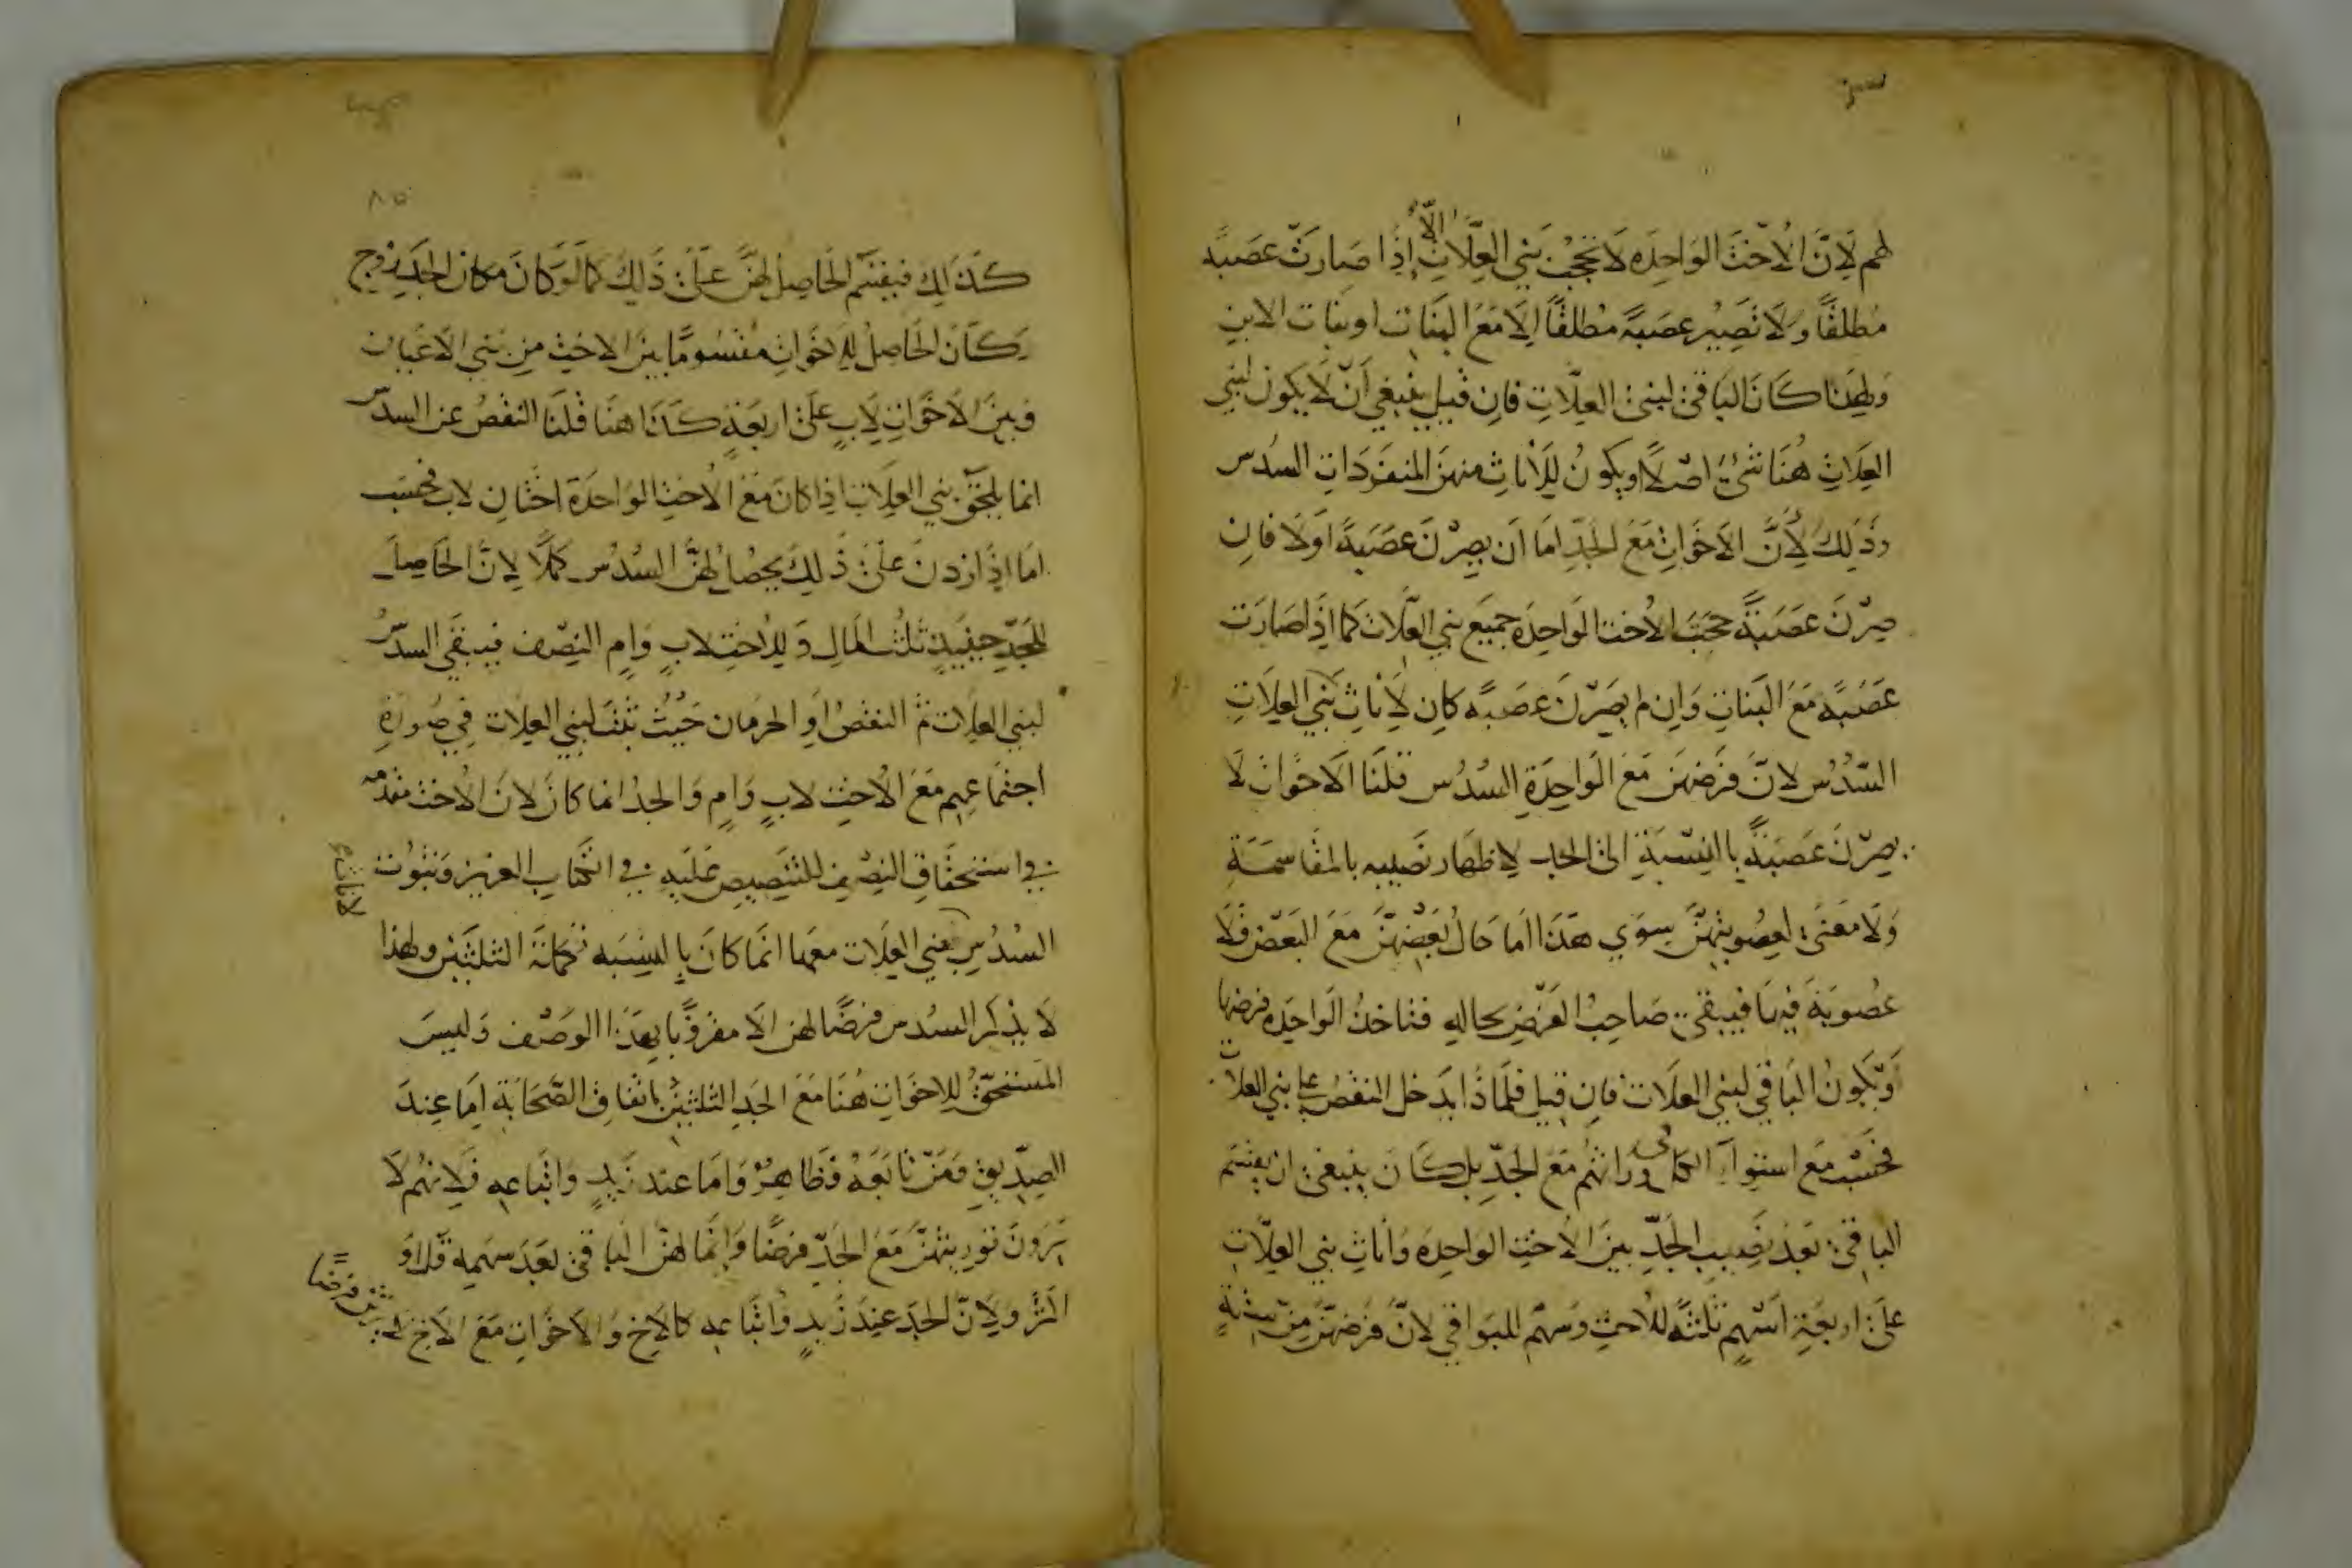 لهم لان الاخت الواحده لا تحجب بني العلات الا اذا صارت عصبة
مطلقا ولا تصير عصبة مطلقا الا مع البنات او بنات الابن
ولهذا كان الباقى لبنى العلات فان قيل ينبغي ان لا يكون لبني
العلات هنا شئ اصلا او يكون للاناث منهن المنفردات السدس
وذلك لان الاخوات مع الجد اما ان يصرن عصبة اولا فان
صرن عصبة حجبت الاخت الواحدة جميع بني العلات كما اذا صارت
عصبة مع البنات وان لم يصرن عصبة كان لاناث بني العلات
السدس لان فرضهن مع الواحدة السدس قلنا الاخوات لا
يصرن عصبة بالنسبة الى الجد لاظهار نصيبه بالمقاسمة
ولا معنى لعصوبتهن سوى هذا اما حال بعضهن مع البعض فلا
عصوبة فيها فيبقى صاحب الفرض بحاله فتاخذ الواحدة فرضها
ويكون الباقي لبني العلات فان قيل فلماذا يدخل النقص على بني العلات
فحسب مع استواء الكل في وراثتهم مع الجد بل كان ينبغي ان يقسم
الباقي بعد نصيب الجد بين الاخت الواحدة واناث بني العلات
على اربعة اسهم ثلثة للاخت وسهم للبواقي لان فرضهن من ستة
٨٥
كذلك فيقسم الحاصل لهن على ذلك كما لو كان مكان الجد زوج
كان الحاصل للاخوات مقسوما بين الاخت من بني الاعيان
وبين الاخوات لاب على اربعة كذا هنا قلنا النقص عن السدس
انما يلحق بني العلات اذا كان مع الاخت الواحدة اختان لاب فحسب
اما اذا زدن على ذلك يحصل لهن السدس كملا لان الحاصل
للجد حينئذ ثلث المال وللاخت لاب وام النصف فيبقى السدس
لبني العلات ثم النقص او الحرمان حيث لبني العلات في صورة
اجتماعهم مع الاخت لاب وام والجد انما كان لان الاخت مقدمه
في استحقاق النصف للتنصيص عليه في الكتاب العزيز وثبوت
السدس لبني العلات معها انما كان بالنسبه تكملة الثلثين ولهذا
لا يذكر السدس فرضا لهن الا مقرونا بهذا الوصف وليس
المستحق للاخوات هنا مع الجد الثلثين باتفاق الصحابة اما عند
الصديق ومن تابعه فظاهر واما عند زيد واتباعه فلانهم لا
يرون توريثهن مع الجد فرضا وانما لهن الباقى بعد سهمه قل او
كثر ولان الجد عند زيد واتباعه كالاخ والاخوات مع الاخ لا يرثن فرضا